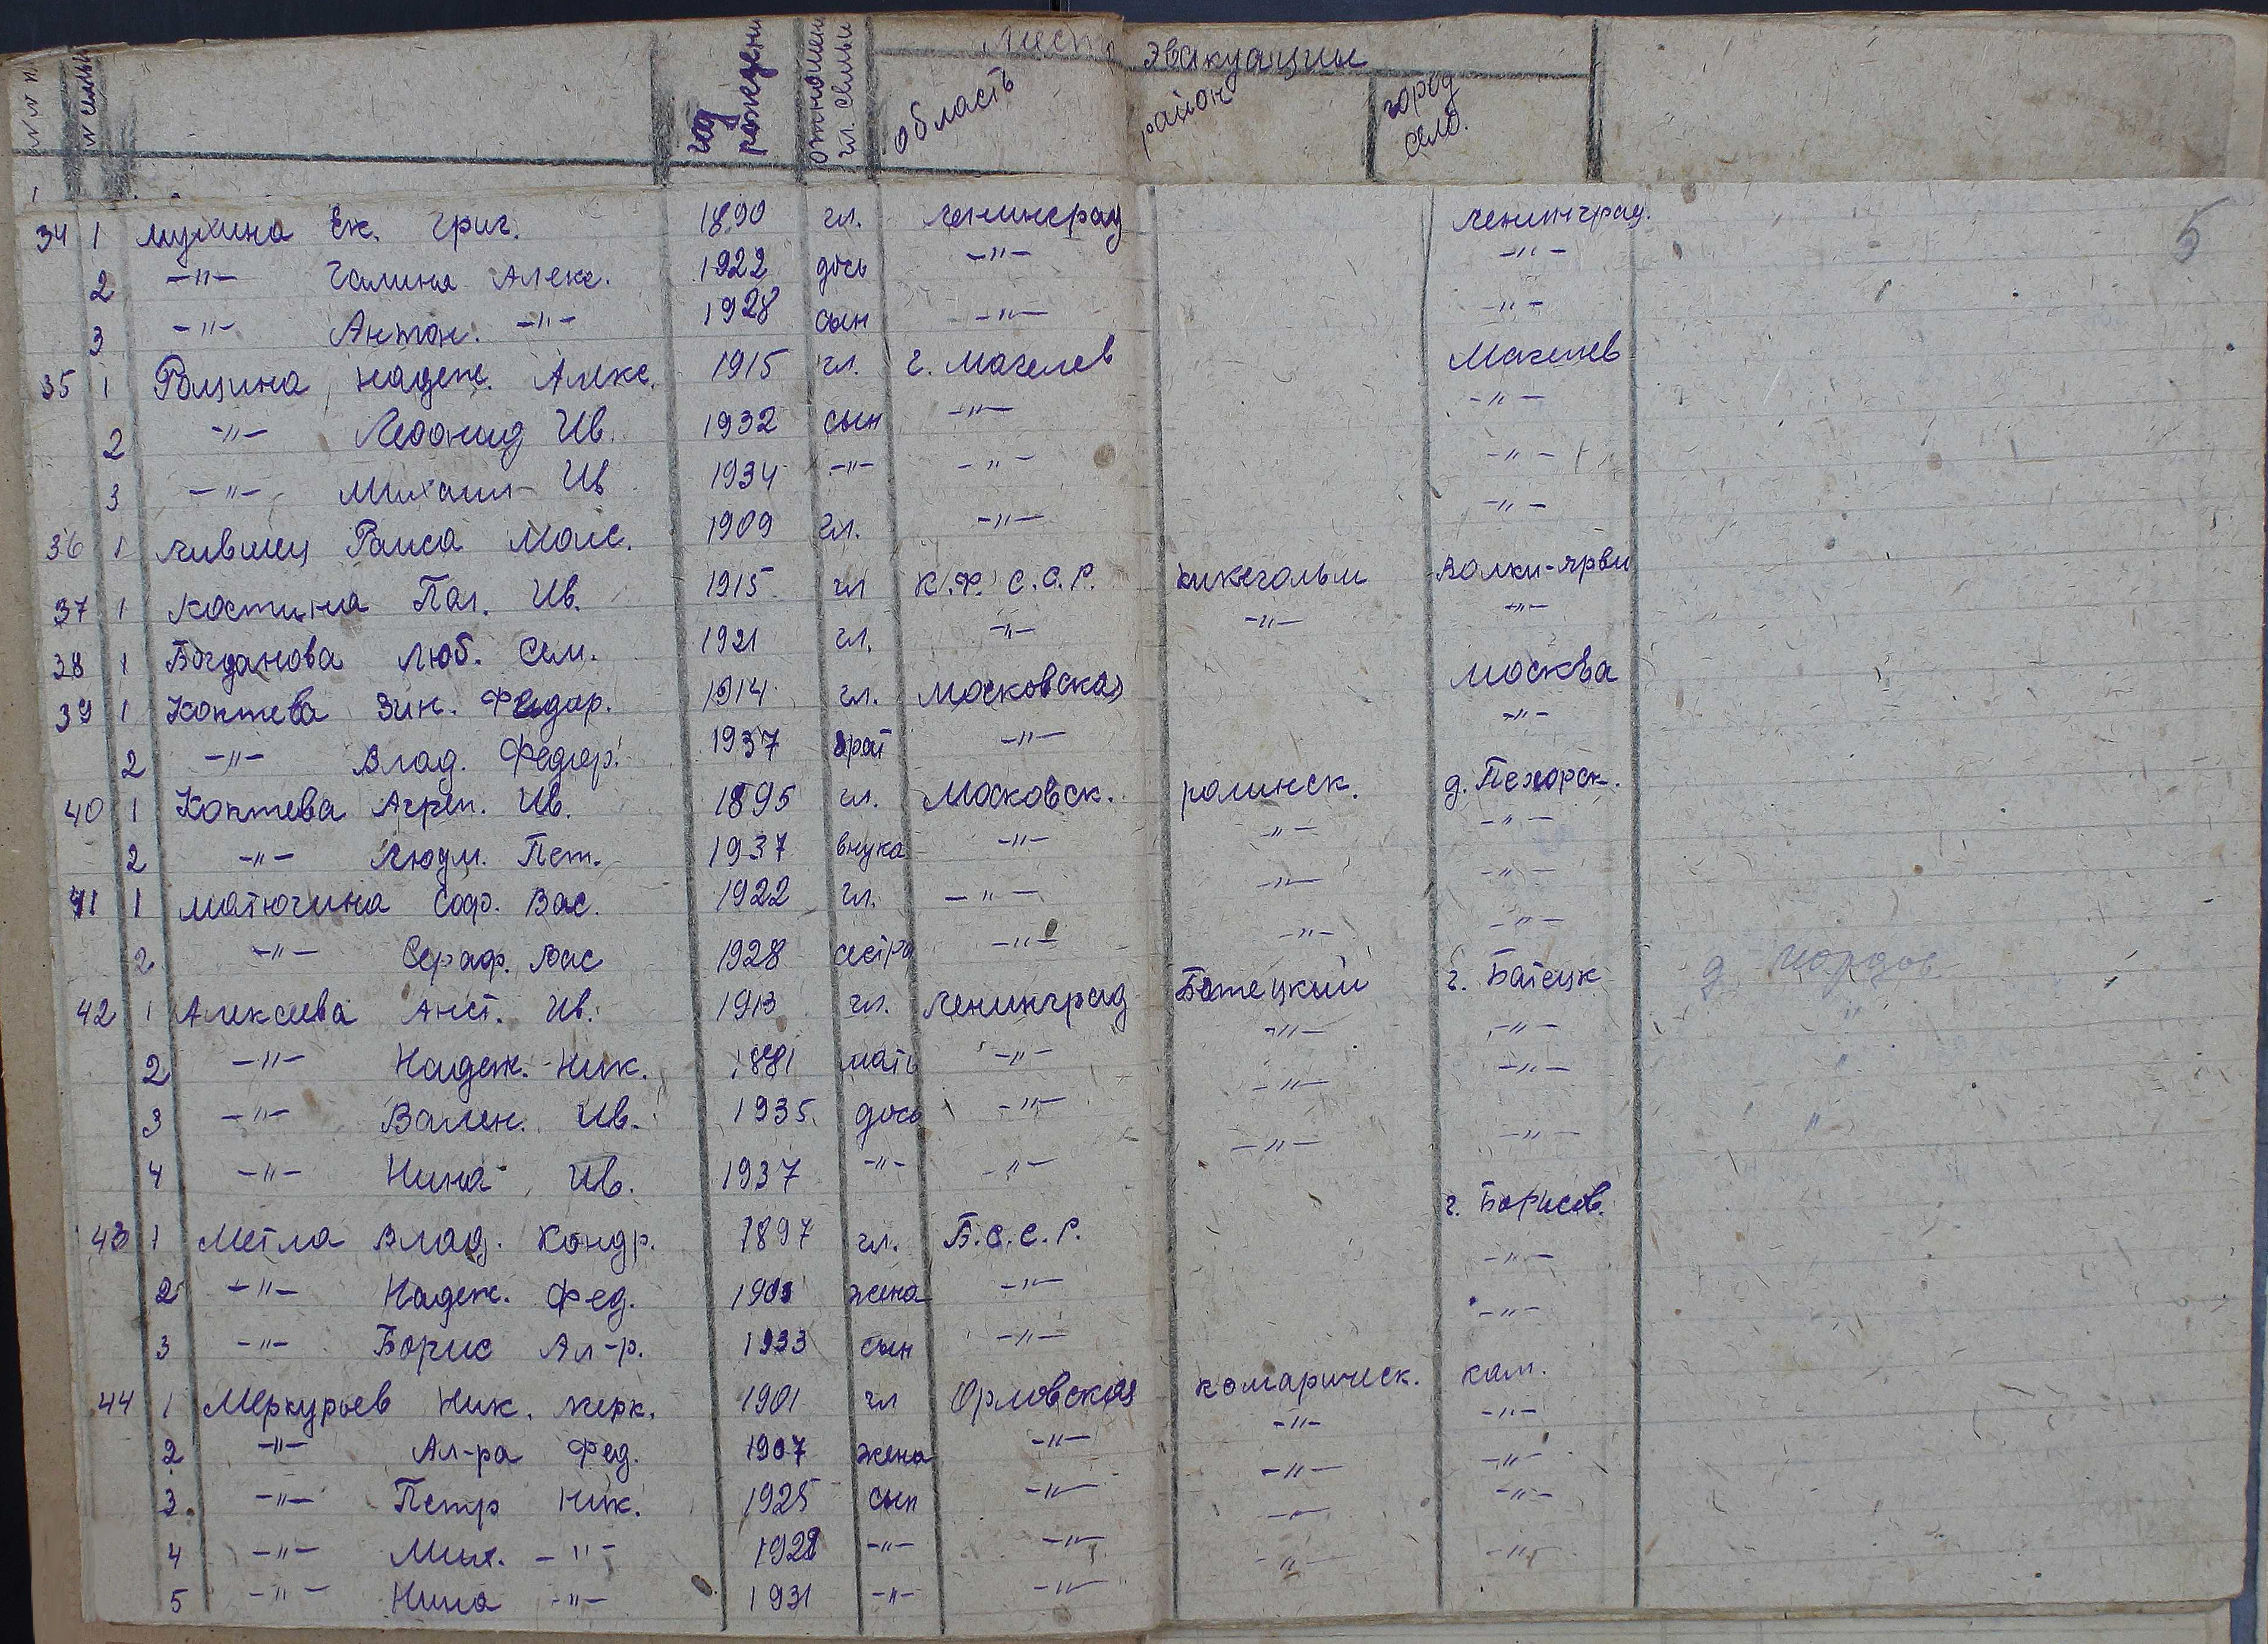 №№ п
№ семьи
год рождени
отношен гл. семьи
мест эвакуации
область
район
город село.
5
34 1 Мухина Ек. Григ. 1890 гл. Ленинград Ленинград.
2 -"- Галина Алекс. 1922 дочь -"- -"-
3 -"- Антон. -"- 1928 сын -"- -"-
35 1 Рощина Надеж. Алекс. 1915 гл. г. Магелев Магелев
2 -"- Леонид Ив. 1932 сын -"- -"-
3 -"- Михаил Ив 1934 -"- -"- -"-
36 1 Лившиц Раиса Моис. 1909 гл. -"- -"-
37 1 Костина Пол. Ив. 1915 гл К.Ф. С.С.Р. Кикгольм Волки-Ярви
38 1 Богданова Люб. Сем. 1921 гл. -"- -"- -"-
39 1 Коптева Зин. Федор. 1914 гл. Московская Москва
2 -"- Влад. Федор. 1937 брат -"- -"-
40 1 Коптева Агреп. Ив. 1895 гл. Московск. ромынск. д. Пехорск.
2 -"- Людм. Пет. 1937 внука -"- -"- -"-
41 1 Матюгина Соф. Вас. 1922 гл. -"- -"- -"-
2 -"- Сераф. Вас 1928 сестра -"- -"- -"-
42 1 Алексеева Анст. Ив. 1913 гл. Ленинград Ботецкий г. Батецк д.
2 -"- Надеж. Ник. 1881 мать -"- -"- -"- "
3 -"- Вален. Ив. 1935 дочь -"- -"- -"- "
4 -"- Нина Ив. 1937 -"- -"- -"- -"- "
43 1 Метла Влад. Кондр. 1897 гл. Б.С.С.Р. г. Борисов.
2 -"- Надеж. Фед. 1903 жена -"- -"-
3 -"- Борис Ал-р. 1933 сын -"- -"-
44 1 Меркурьев Ник. Мерк. 1901 гл Орловская комарическ. ком.
2 -"- Ал-ра Фед. 1907 жена -"- -"- -"-
3 -"- Петр Ник. 1925 сын -"- -"- -"-
4 -"- Мих. -"- 1928 -"- -"- -"- -"-
5 -"- Нина -"- 1931 -"- -"- -"- -"-